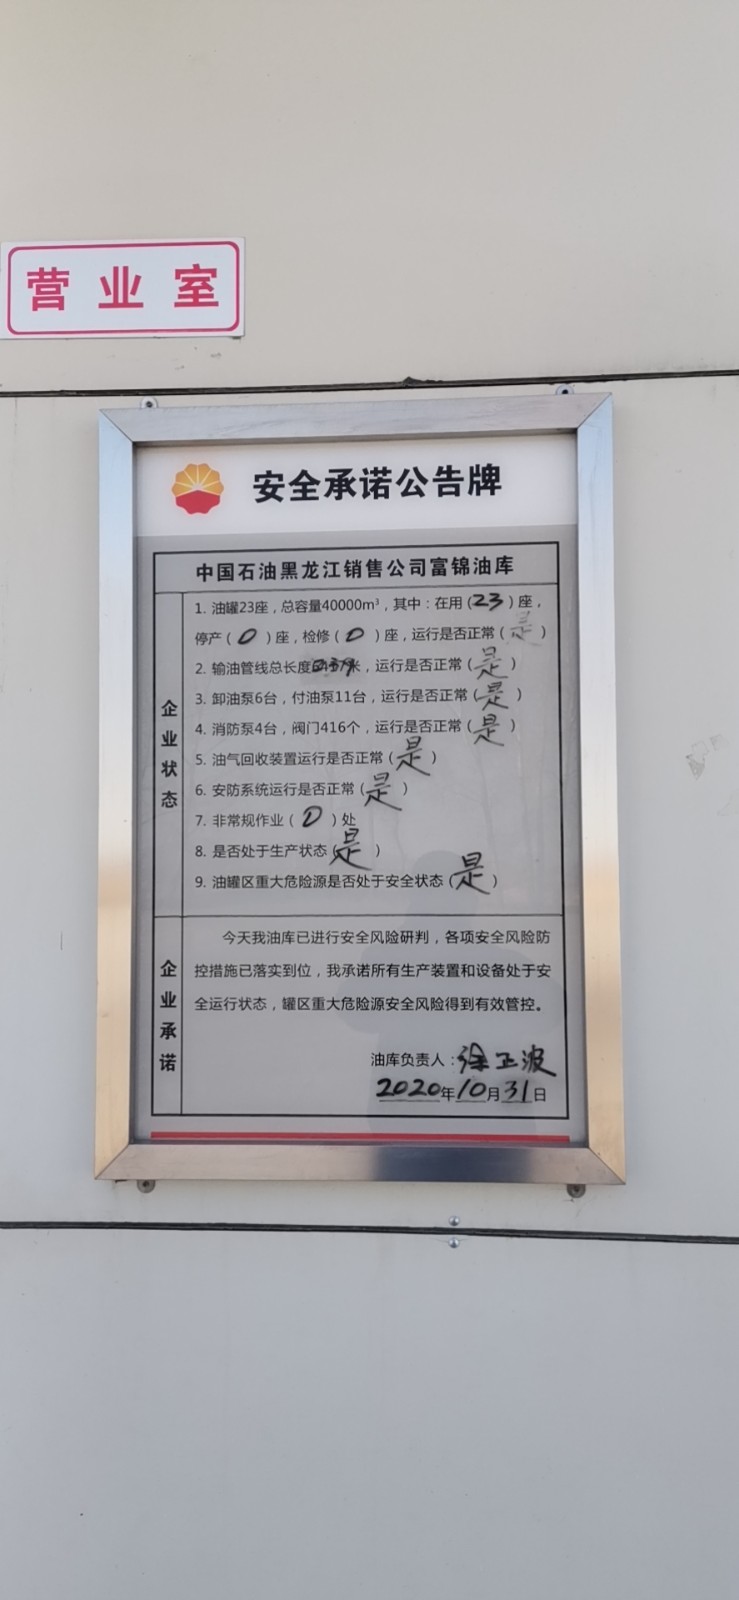 营业室
安全承诺公告牌
中国石油黑龙江销售公司富锦油库
企业状态
1. 油罐23座，总容量40000m³，其中：在用（23）座，
停产（0）座，检修（0）座，运行是否正常（是）
2. 输油管线总长度 米，运行是否正常（是）
3. 卸油泵6台，付油泵11台，运行是否正常（是）
4. 消防泵4台，阀门416个，运行是否正常（是）
5. 油气回收装置运行是否正常（是）
6. 安防系统运行是否正常（是）
7. 非常规作业（0）处
8. 是否处于生产状态（是）
9. 油罐区重大危险源是否处于安全状态（是）
企业承诺
今天我油库已进行安全风险研判，各项安全风险防
控措施已落实到位，我承诺所有生产装置和设备处于安
全运行状态，罐区重大危险源安全风险得到有效管控。
油库负责人：徐正波
2020年10月31日